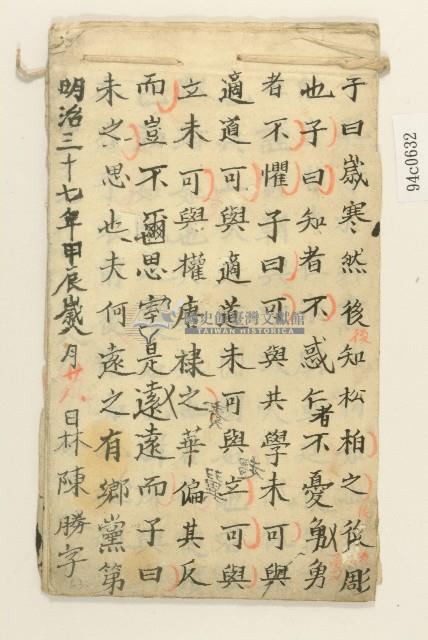 子曰歲寒然後知松柏之後彫
也子曰知者不惑仁者不憂勇
者不懼子曰可與共學未可與
適道可與適道未可與立可與
立未可與權唐棣之華偏其反
而豈不爾思室是遠遠而子曰
未之思也夫何遠之有鄉黨第
明治三十七年甲辰歲八月廿八日林陳勝字
臺灣史檔案文獻館
TAIWAN HISTORICA
94c0632